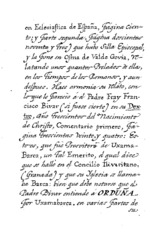 en Eclesiastica de España, Pagina cien-
to; y parte segunda, Pagina doscientas
noventa y tres) que hubo Silla Episcopal,
y la pone en Osma de Valda Govia, Ti-
tulando unos quantos Prelados à ellas,
en los tiempos de los Romanos, y aun
despues. Hace armonia en Moto, sen-
que le siguiò à el Padre Fray Fran-
cisco Bivar (si fuese cierto) en su Dex-
tro, Año trescientos del Nacimiento
de Christo, Comentario primero, Pagi-
na trescientas treinta y quatro; Es-
to es, que fue Convertero de Uxama-
Barca, un Tal Emerito, à quel dice
que se hallò en el Concilio Iliveritano,
(Granada) y que su Iglesia se llama-
ba Barca: bien que debe notarse que al
Padre Bivar entiende à ORDUÑA
por Uxamabarca, en varias partes de
su